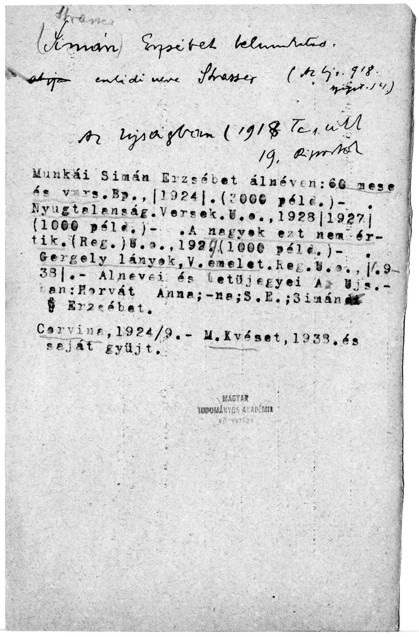 Strasser
(Simán) Erzsébet
eredeti neve Strasser (Az Ujs. 918.
Az Ujságban (1918
19.
Munkái Simán Erzsébet álnéven:60 mese
és vers.Bp.,|1924|.(3000 péld.)- .
Nyugtalanság.Versek.U.o.,1928|1927|
(1000 péld.)- .A nagyok ezt nem ér-
tik.(Reg.)U.o.,192 /(1000 péld.)- .
Gergely lányok,V.emelet.Reg.U.o.,|/.9-
38|.- Álnevei és betűjegyei Az Ujs.-
ban:Horvát Anna;-na;S.E.;Simán
Erzsébet.
Corvina,1924/9.- M.Kvéset,1938.és
saját gyüjt.
MAGYAR
TUDOMÁNYOS AKADÉMIA
KÖNYVTÁRA